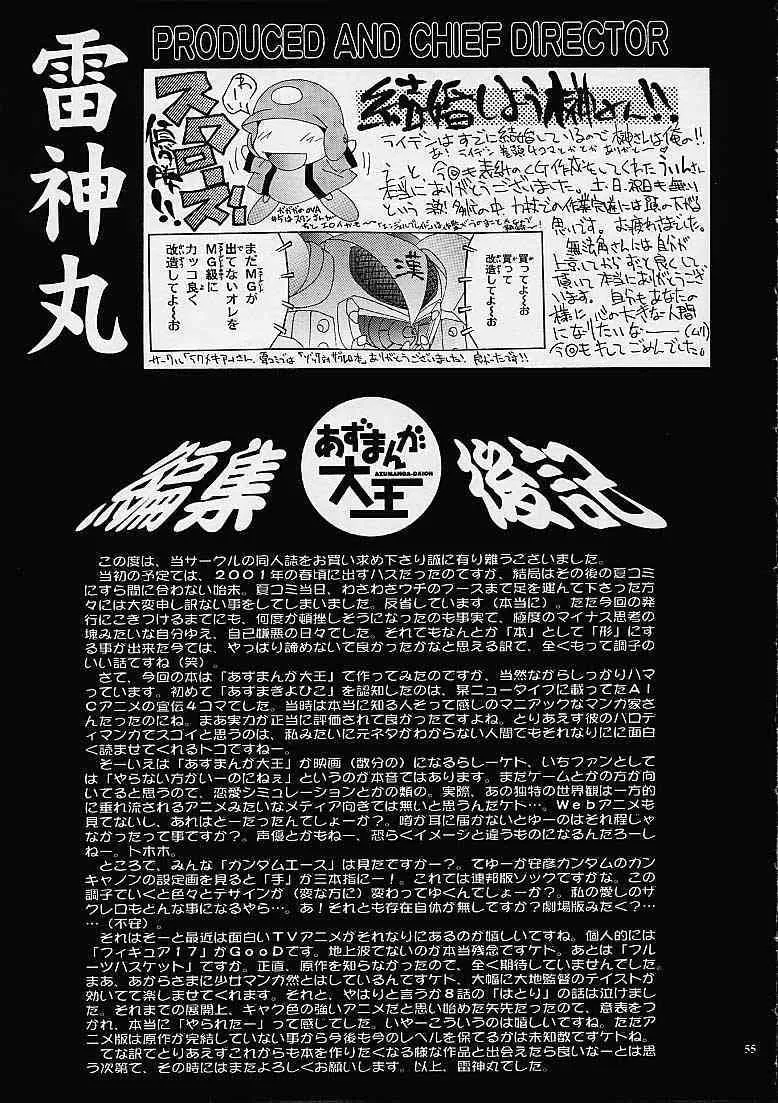 雷神丸
PRODUCED AND CHIEF DIRECTOR
結婚しよう榊さん!!
ライデンはすでに結婚しているので榊さんは俺の!!
えと、今回も表紙のCG作業をしてくれたういんさん
本当にありがとうございました。土、日、祝日も無い
という激!多忙の中
思いです。お疲れさまでした。
無法角さんには自分が
上京してからずっと良くして
頂いて本当にありがとうござ
います。自分もあなたの
様に心の大きな人間
になりたいな──(ムリ)
今回もキしてごめんでした。
買ってよ〜お
買って
改造してよ〜お
漢
まだMGが
出てないオレを
MG級に
カッコ良く
改造してよ〜お
あずまんが
AZUMANGA-DAIOH
大王
編集後記
この度は、当サークルの同人誌をお買い求め下さり誠に有り難うございました。
当初の予定では、2001年の春頃に出すハズだったのですが、結局はその後の夏コミ
にすら間に合わない始末。夏コミ当日、わざわざウチのブースまで足を運んで下さった方
々には大変申し訳ない事をしてしまいました。反省しています(本当に)。ただ今回の発
行にこぎつけるまでにも、何度か頓挫しそうになったのも事実で、極度のマイナス思考の
塊みたいな自分ゆえ、自己嫌悪の日々でした。それでもなんとか「本」として「形」にす
る事が出来た今では、やっぱり諦めないで良かったかなと思える訳で、全くもって調子の
いい話ですね(笑)。
さて、今回の本は「あずまんが大王」で作ってみたのですが、当然ながらしっかりハマ
っています。初めて「あずまきよひこ」を認知したのは、某ニュータイプに載ってたAI
Cアニメの宣伝4コマでした。当時は本当に知る人ぞって感じのマニアックなマンガ家さ
んだったのにね。まあ実力が正当に評価されて良かったですよね。とりあえず彼のパロデ
ィマンガでスゴイと思うのは、私みたいに元ネタがわからない人間でもそれなりにに面白
く読ませてくれるトコですねー。
そーいえば「あずまんが大王」が映画(数分の)になるらしーケド、いちファンとして
は「やらない方がいーのにねぇ」というのが本音ではあります。まだゲームとかの方が向
いてると思うので、恋愛シミュレーションとかの類の。実際、あの独特の世界観は一方的
に垂れ流されるアニメみたいなメディア向きでは無いと思うんだケド…。Webアニメも
見てないし、あれはどーだったんでしょーか?。噂が耳に届かないとゆーのはそれ程じゃ
なかったって事ですか?。声優とかもねー、恐らくイメージと違うものになるんだろーし
ねー。トホホ。
ところで、みんな「ガンダムエース」は見たですかー?。てゆーか安彦ガンダムのガン
キャノンの設定画を見ると「手」が三本指にー!。これでは連邦版ゾックですがな。この
調子でいくと色々とデザインが(変な方に)変わってゆくんでしょーか?。私の愛しのザ
クレロもどんな事になるやら…。あ!それとも存在自体が無しですか?劇場版みたく?…
…(不安)。
それはそーと最近は面白いTVアニメがそれなりにあるのが嬉しいですね。個人的には
「フィギュア17」がGooDです。地上波でないのが本当残念ですケド。あとは「フル
ーツバスケット」ですか。正直、原作を知らなかったので、全く期待していませんでした。
まあ、あからさまに少女マンガ然とはしているんですケド、大幅に大地監督のテイストが
効いてて楽しませてくれます。それと、やはりと言うか8話の「はとり」の話は泣けまし
た。それまでの展開上、ギャグ色の強いアニメだと思い始めた矢先だったので、意表をつ
かれ、本当に「やられたー」って感じでした。いやーこういうのは嬉しいですね。ただア
ニメ版は原作が完結していない事から今後も今のレベルを保てるかは未知数ですケドねー。
てな訳でとりあえずこれからも本を作りたくなる様な作品と出会えたら良いなーとは思
う次第で、その時にはまたよろしくお願いします。以上、雷神丸でした。
55